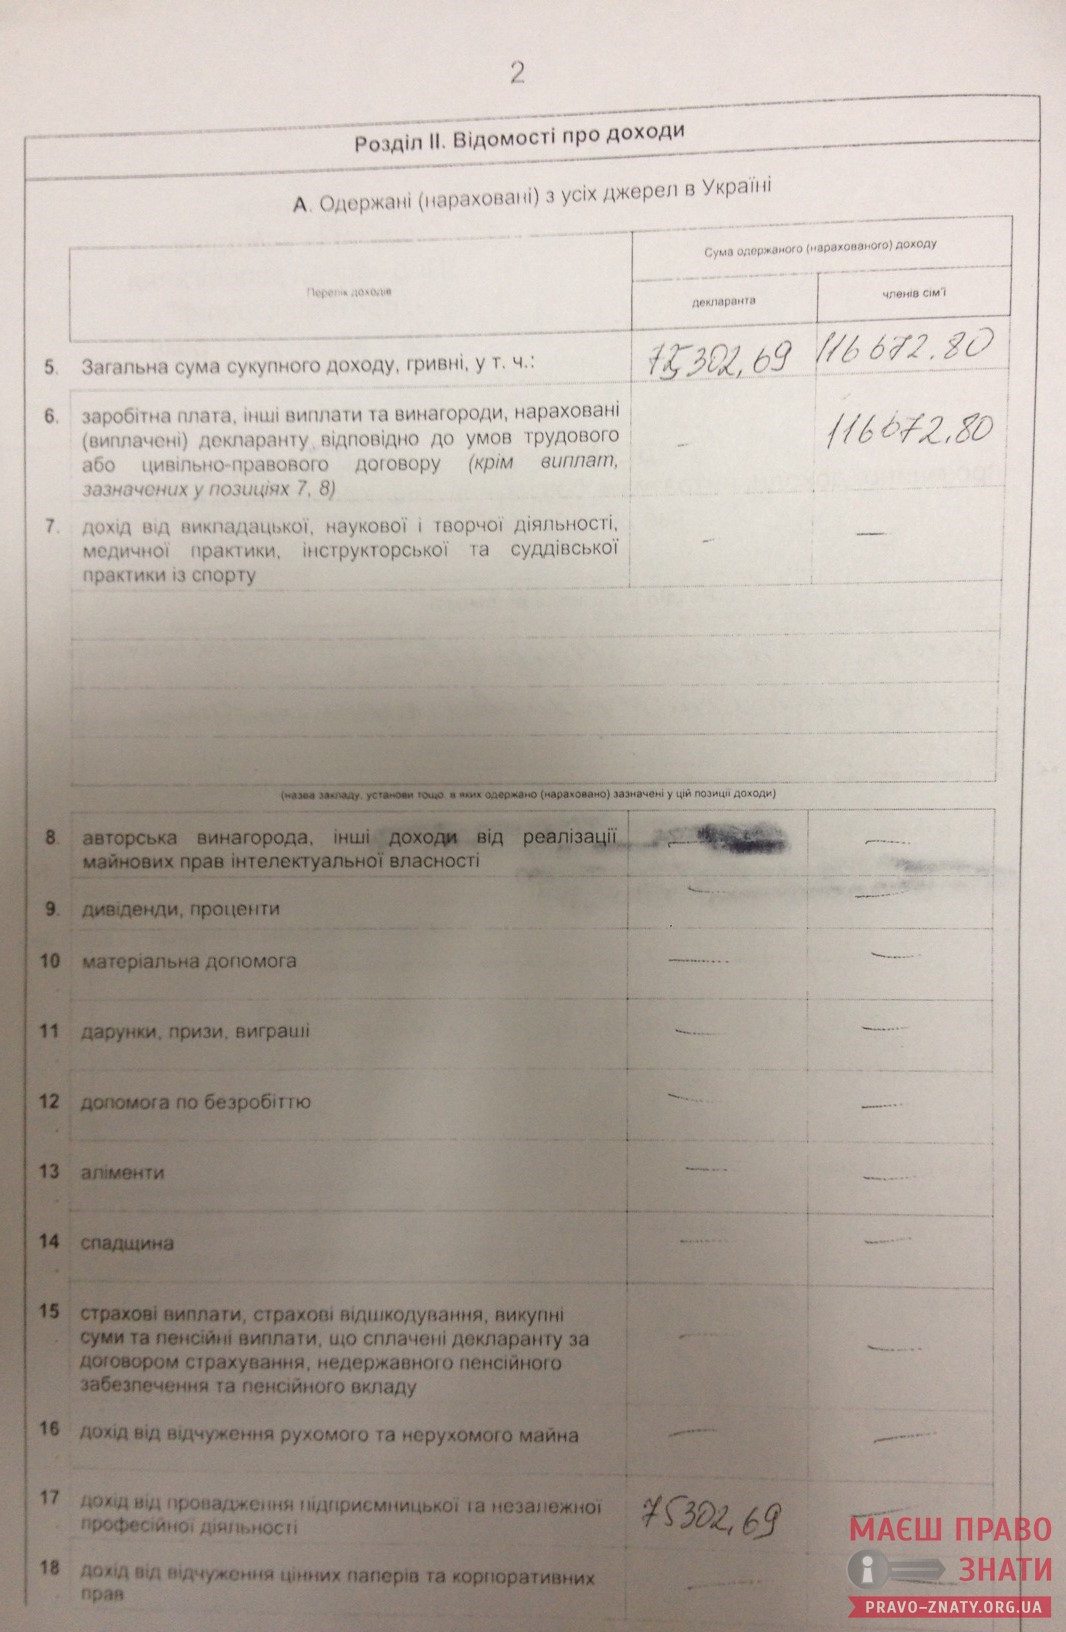 2
Розділ II. Відомості про доходи
А. Одержані (нараховані) з усіх джерел в Україні
Перелік доходів
Сума одержаного (нарахованого) доходу
декларанта
членів сім'ї
5. Загальна сума сукупного доходу, гривні, у т. ч.: 75302,69 116672.80
6. заробітна плата, інші виплати та винагороди, нараховані
(виплачені) декларанту відповідно до умов трудового – 116672.80
або цивільно-правового договору (крім виплат,
зазначених у позиціях 7, 8)
7. дохід від викладацької, наукової і творчої діяльності,
медичної практики, інструкторської та суддівської – —
практики із спорту
(назва закладу, установи тощо, в яких одержано (нараховано) зазначені у цій позиції доходи)
8. авторська винагорода, інші доходи від реалізації — —
майнових прав інтелектуальної власності
9. дивіденди, проценти — —
10 матеріальна допомога — —
11 дарунки, призи, виграші — —
12 допомога по безробіттю — —
13 аліменти — —
14 спадщина — —
15 страхові виплати, страхові відшкодування, викупні
суми та пенсійні виплати, що сплачені декларанту за — —
договором страхування, недержавного пенсійного
забезпечення та пенсійного вкладу
16 дохід від відчуження рухомого та нерухомого майна — —
17 дохід від провадження підприємницької та незалежної 75302,69 —
професійної діяльності
18 дохід від відчуження цінних паперів та корпоративних — —
прав
МАЄШ ПРАВО
ЗНАТИ
PRAVO-ZNATY.ORG.UA